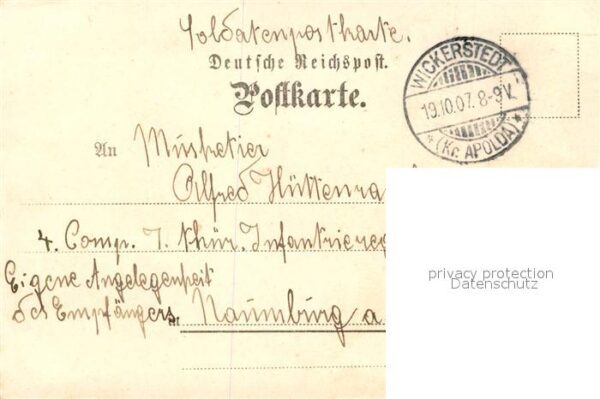 Soldatenpostkarte.
Deutsche Reichspost.
Postkarte.
WICKERSTEDT
19.10.07. 8-9V.
* (Kr. APOLDA) *
An Musketier
Alfred Hüttenra
4. Comp. 7. thür. Infantriereg
Eigene Angelegenheit
des Empfängers.
in Naumburg a.
privacy protection
Datenschutz